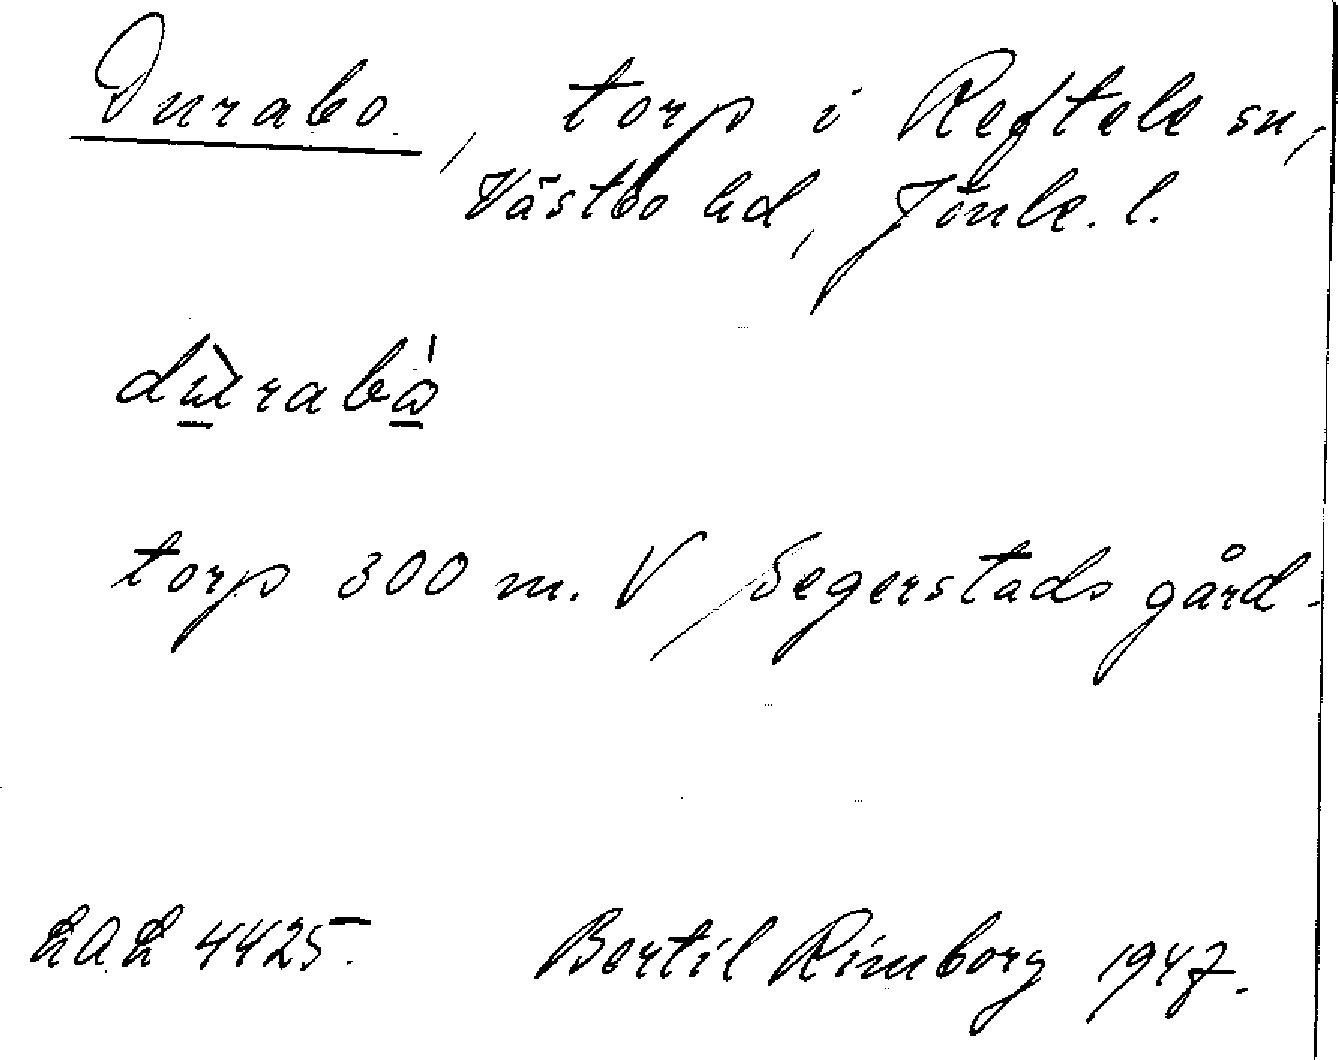 Durabo, torp i Reftele sn,
Västbo hd, Jönk. l.
dùrabó
torp 300 m. V Segerstads gård.
LAL 4425. Bertil Rimborg 1947.